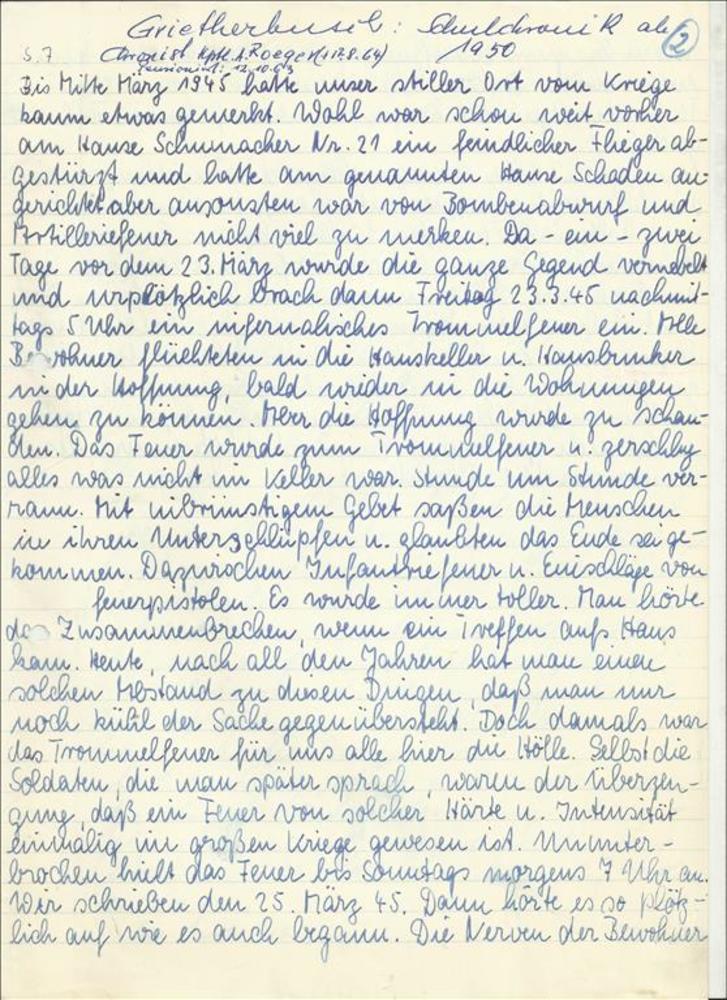 Grietherbusch: Schulchronik ab 1950
2
S. 7 Chronist Hptl. A. Roeger (+ 17.8.64)
pensioniert: 12.10.63
Bis Mitte März 1945 hatte unser stiller Ort vom Kriege
kaum etwas gemerkt. Wohl war schon weit vorher
am Hause Schumacher Nr. 21 ein feindlicher Flieger ab-
gestürzt und hatte am genannten Hause Schaden an-
gerichtet, aber ansonsten war von Bombenabwurf und
Artilleriefeuer nicht viel zu merken. Da - ein - zwei
Tage vor dem 23. März wurde die ganze Gegend vernebelt
und urplötzlich brach dann Freitag 23.3.45 nachmit-
tags 5 Uhr ein infernalisches Trommelfeuer ein. Alle
Bewohner flüchteten in die Hauskeller u. Hausbunker
in der Hoffnung, bald wieder in die Wohnungen
gehen zu können. Aber die Hoffnung wurde zu schan-
den. Das Feuer wurde zum Trommelfeuer u. zerschlug
alles was nicht im Keller war. Stunde um Stunde ver-
rann. Mit inbrünstigem Gebet saßen die Menschen
in ihren Unterschlüpfen u. glaubten das Ende sei ge-
kommen. Dazwischen Infantriefeuer u. Einschläge von
feuerpistolen. Es wurde immer toller. Man hörte
das Zusammenbrechen, wenn ein Treffen aufs Haus
kam. Heute, nach all den Jahren hat man einen
solchen Abstand zu diesen Dingen, daß man nur
noch kühl der Sache gegenübersteht. Doch damals war
das Trommelfeuer für uns alle hier die Hölle. Selbst die
Soldaten, die man später sprach, waren der Überzeu-
gung, daß ein Feuer von solcher Härte u. Intensität
einmalig im großen Kriege gewesen ist. Ununter-
brochen hielt das Feuer bis Sonntags morgens 7 Uhr an.
Wir schrieben den 25. März 45. Dann hörte es so plötz-
lich auf wie es auch begann. Die Nerven der Bewohner